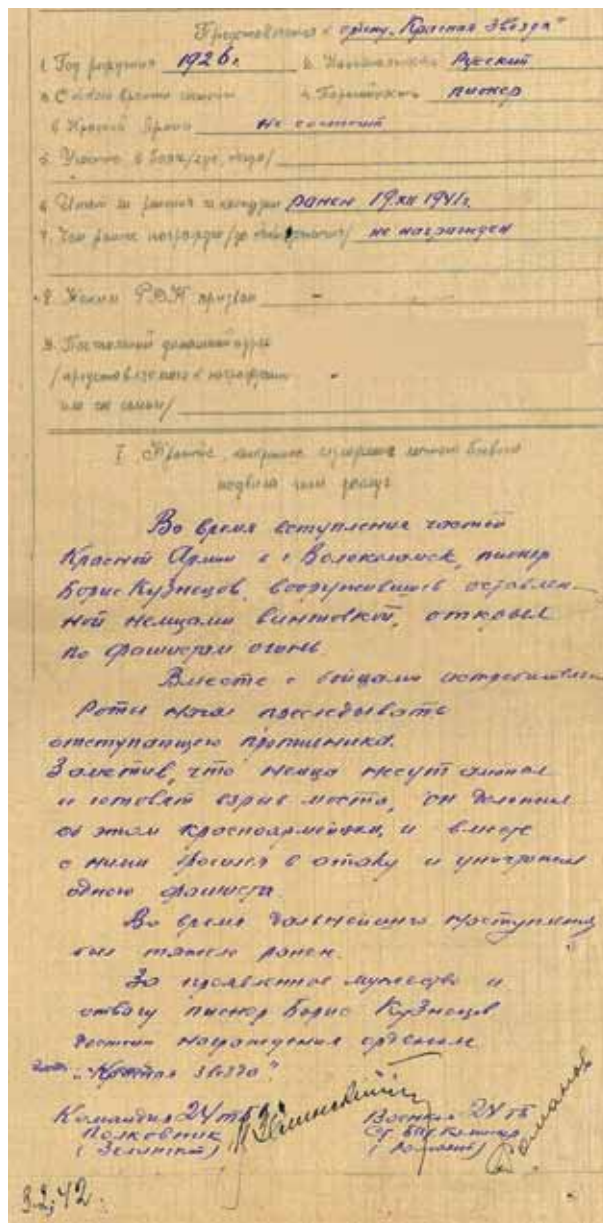 Представляется к ордену "Красная Звезда"
1. Год рождения 1926 г. 2. Национальность Русский
3. С какого времени состоит 4. Партийность пионер
в Красной Армии Не состоит
5. Участие в боях /где, когда/
6. Имеет ли ранения и контузии ранен 19.XII 1941г.
7. Чем ранее награжден /за какие отличия/ не награжден
8. Каким РВК призван -
9. Постоянный домашний адрес
/представляемого к награждению -
или его семьи/
I. Краткое, конкретное изложение личного боевого
подвига или заслуг
Во время вступления частей
Красной Армии в г. Волоколамск, пионер
Борис Кузнецов, вооружившись оставлен-
ной немцами винтовкой, открыл
по фашистам огонь.
Вместе с бойцами истребительной
роты начал преследывать
отступающего противника.
Заметив, что немцы несут аммонал
и готовят взрыв моста, он доложил
об этом красноармейцам, и вместе
с ними бросился в атаку и уничтожил
одного фашиста.
Во время дальнейшего наступления
был тяжело ранен.
За проявленное мужество и
отвагу пионер Борис Кузнецов
достоин награждения орденом
"Красная Звезда".
Командир 24 тбр Военком 24 тб
Полковник Ст. Бат. Комиссар
(Зелинский) (Романов)
3.2.42.